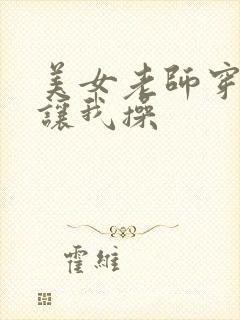 美女老師穿
讓我操
霍維